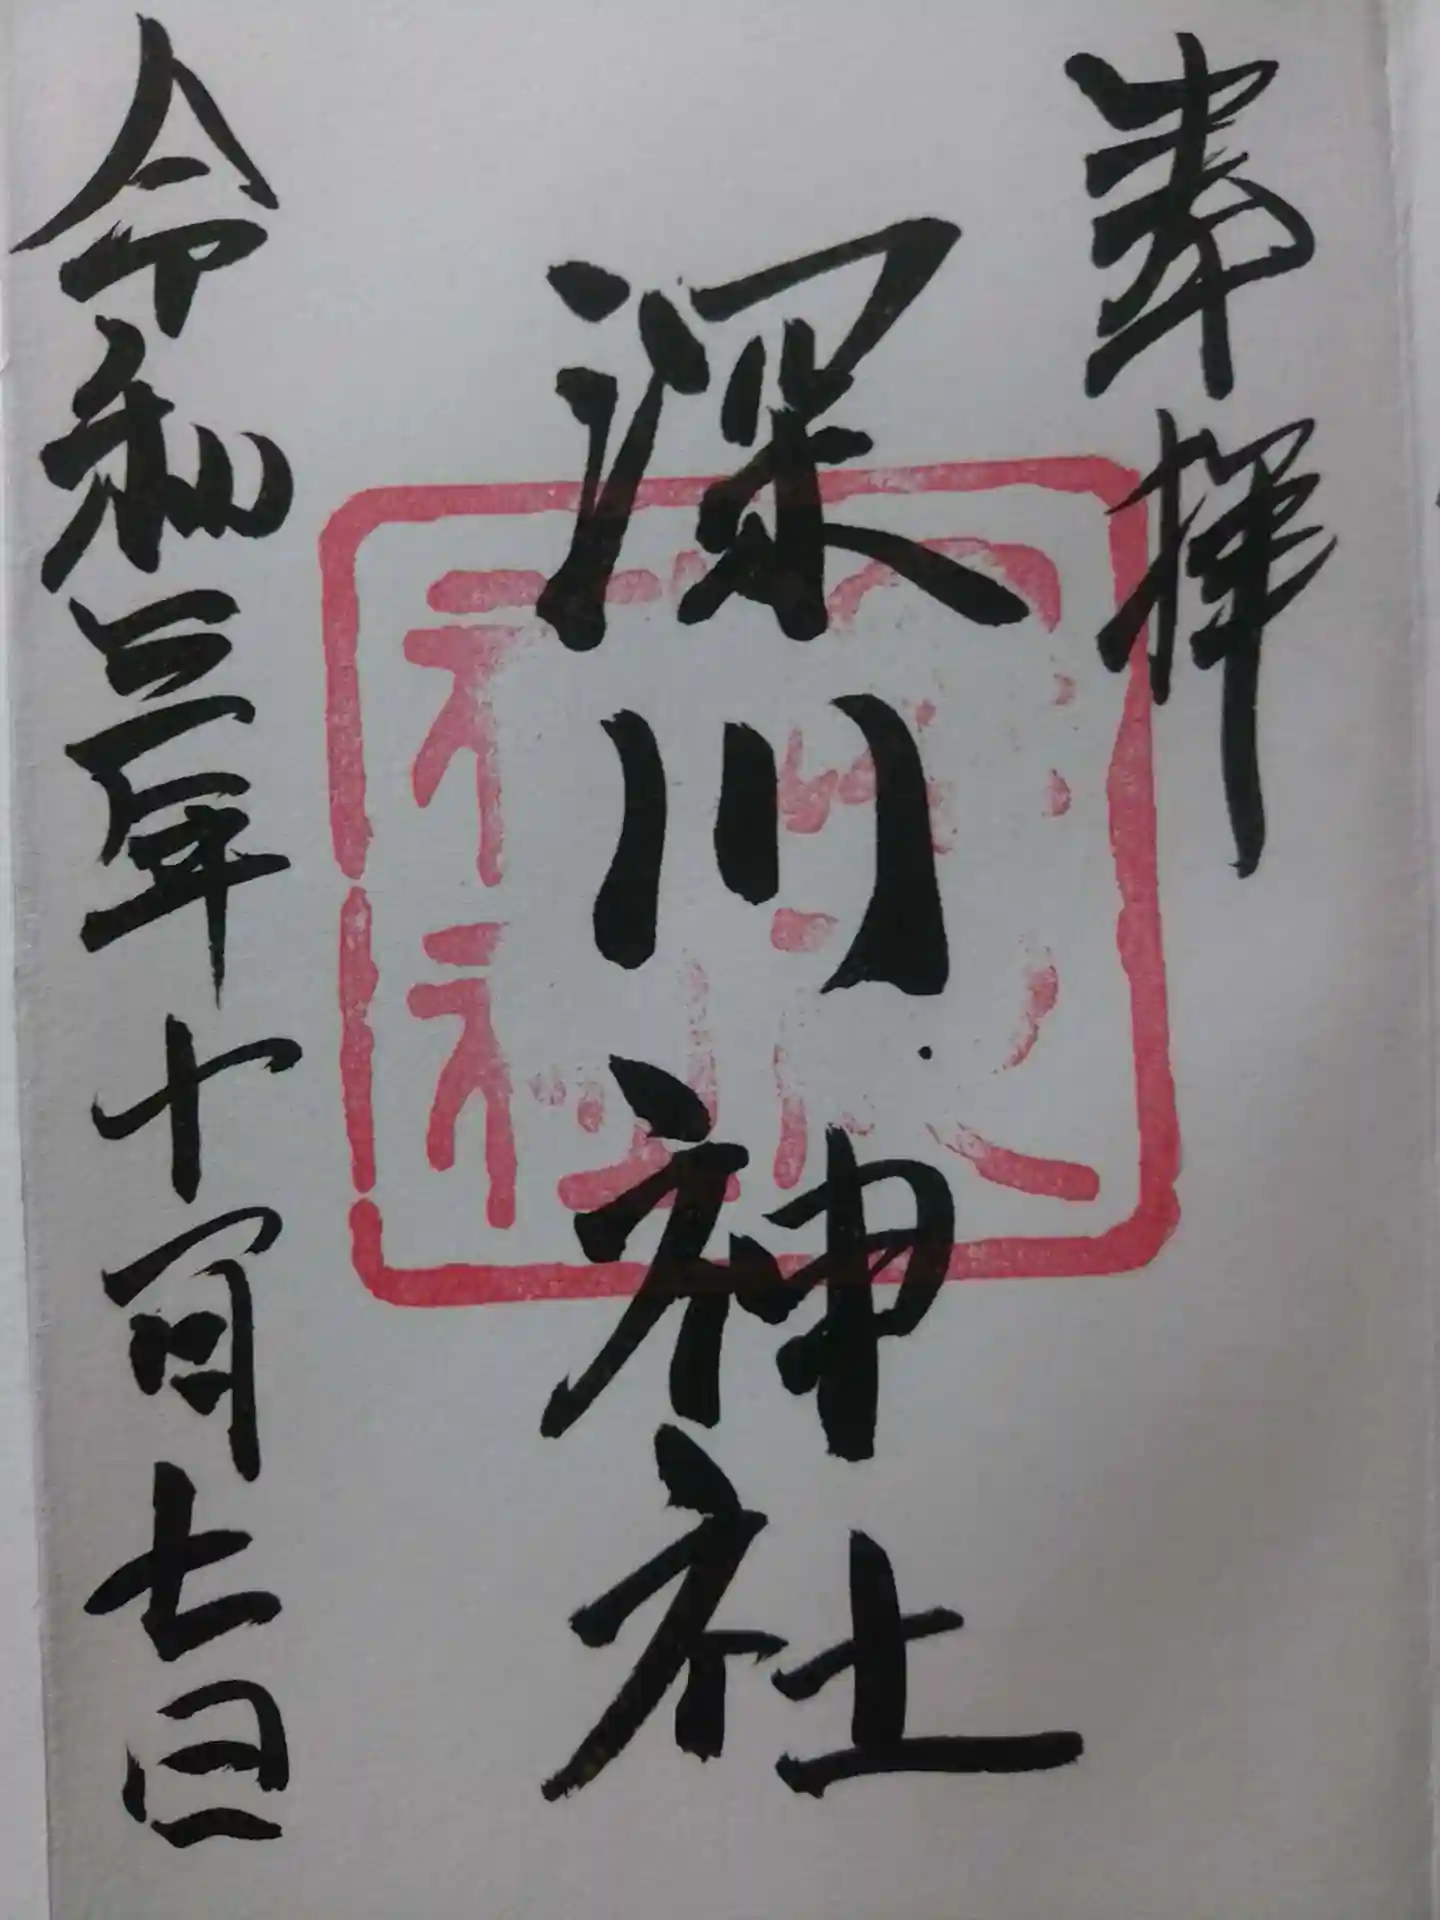 奉拝
深川神社
令和三年十一月七日